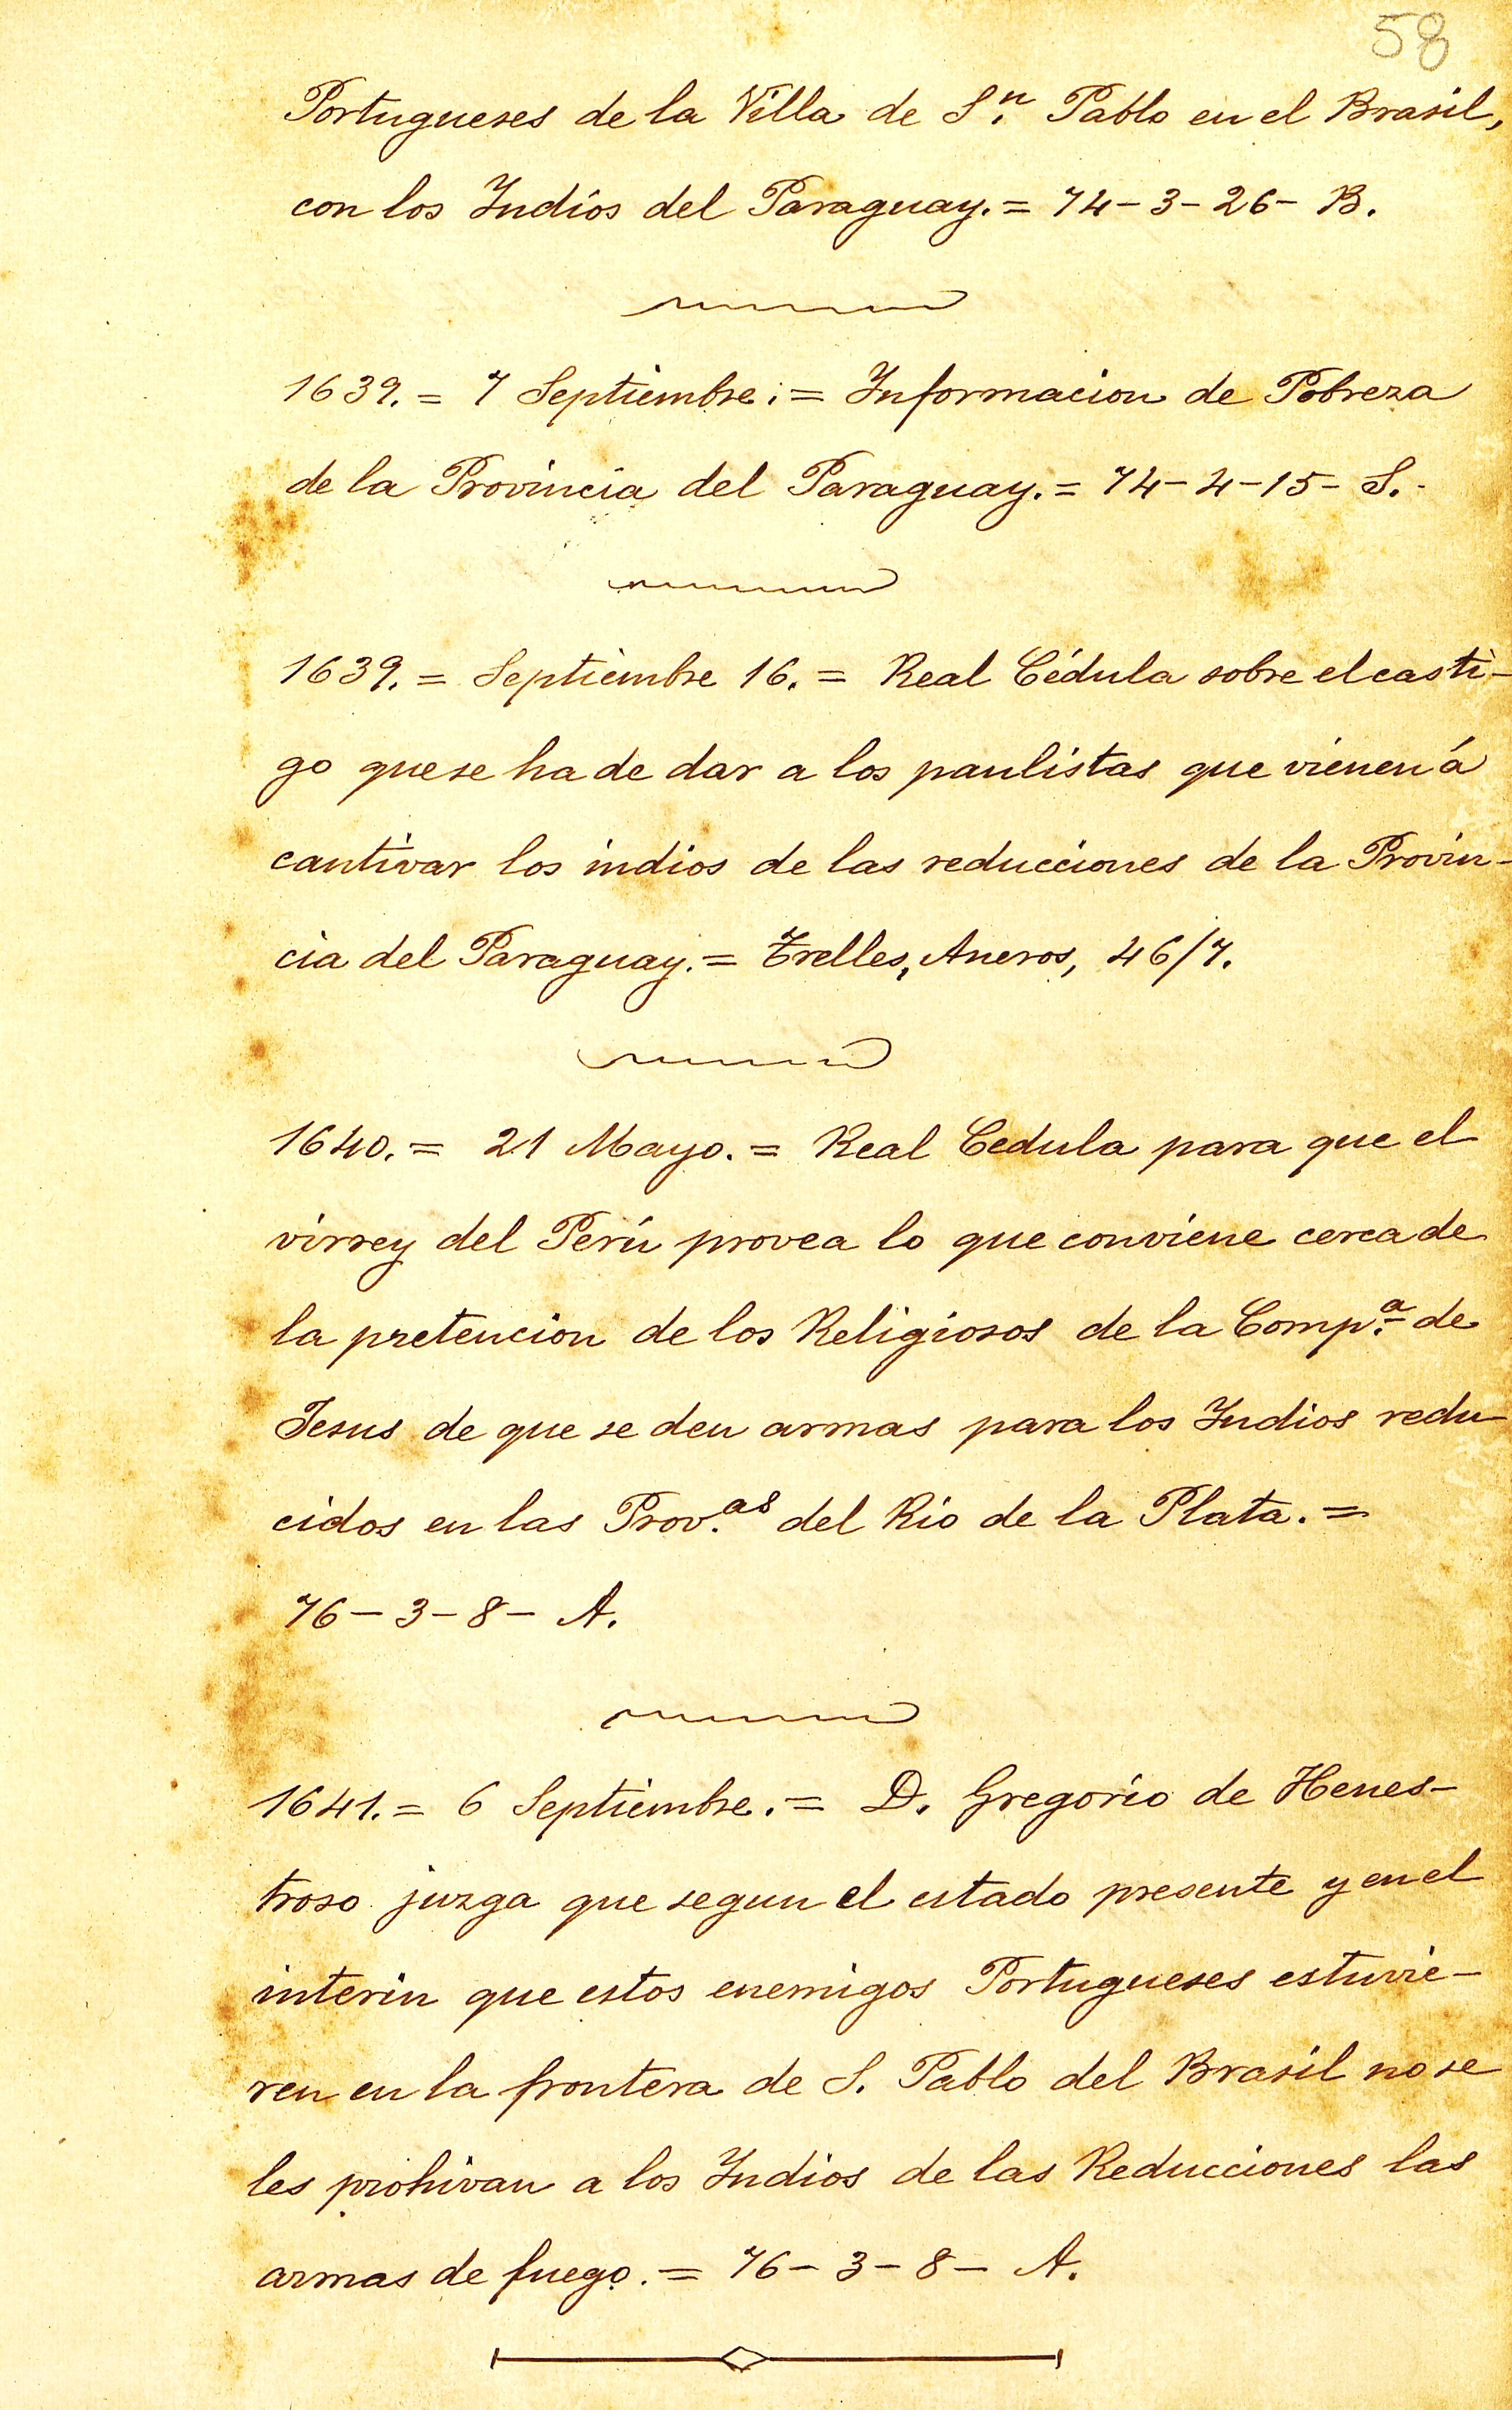 58
Portugueses de la Villa de S.ⁿ Pablo en el Brasil,
con los Indios del Paraguay. = 74-3-26- B.
1639. = 7 Septiembre. = Informacion de Pobreza
de la Provincia del Paraguay. = 74-4-15- S.-
1639. = Septiembre 16. = Real Cédula sobre el casti-
go que se ha de dar a los paulistas que vienen á
cautivar los indios de las reducciones de la Provin-
cia del Paraguay. = Trelles, Aneros, 46/7.
1640. = 21 Mayo. = Real Cedula para que el
virrey del Perú provea lo que conviene cerca de
la pretencion de los Religiosos de la Comp.ª de
Jesus de que se den armas para los Indios redu-
cidos en las Prov.ᵃˢ del Rio de la Plata. =
76-3-8- A.
1641. = 6 Septiembre. = D. Gregorio de Henes-
troso juzga que segun el estado presente y en el
interin que estos enemigos Portugueses estuvie-
ren en la frontera de S. Pablo del Brasil no se
les prohivan a los Indios de las Reducciones las
armas de fuego. = 76-3-8- A.